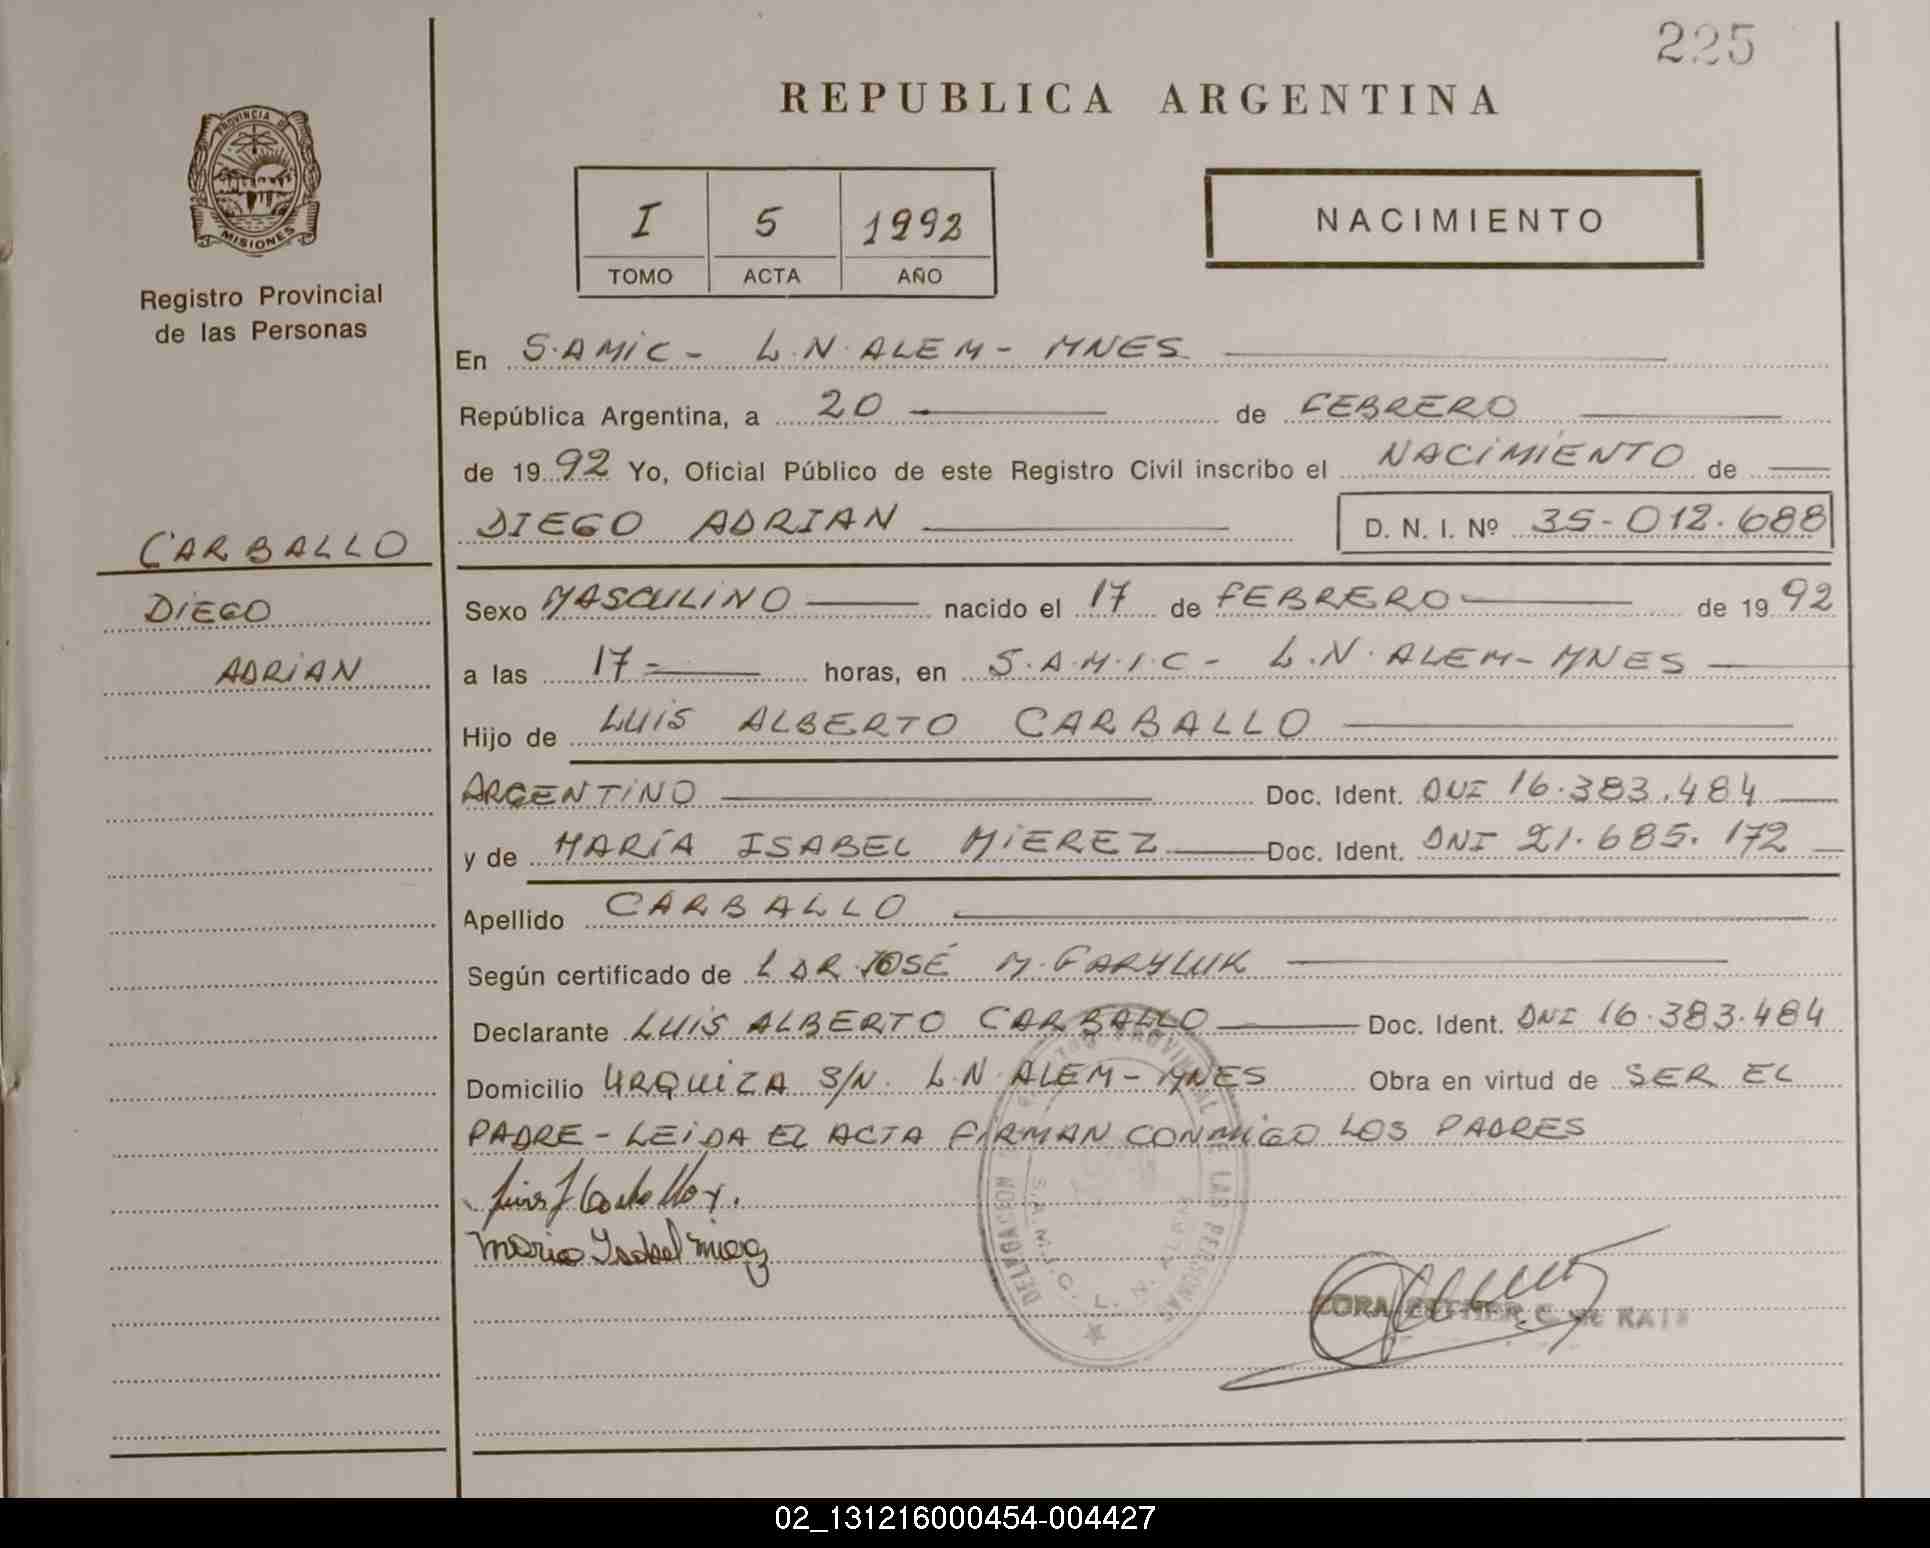 225
REPUBLICA ARGENTINA
PROVINCIA DE
MISIONES
Registro Provincial
de las Personas
I 5 1992
TOMO ACTA AÑO
NACIMIENTO
En S.AMIC - L.N. ALEM - MNES
República Argentina, a 20 de FEBRERO
de 1992 Yo, Oficial Público de este Registro Civil inscribo el NACIMIENTO de
DIEGO ADRIAN D. N. I. Nº 35-012.688
CARBALLO
DIEGO
ADRIAN
Sexo MASCULINO nacido el 17 de FEBRERO de 1992
a las 17- horas, en S.A.M.I.C - L.N. ALEM - MNES
Hijo de LUIS ALBERTO CARBALLO
ARGENTINO Doc. Ident. DNI 16.383.484
y de MARÍA ISABEL MIEREZ Doc. Ident. DNI 21.685.172
Apellido CARBALLO
Según certificado de DR JOSÉ M. GARYLUK
Declarante LUIS ALBERTO CARBALLO Doc. Ident. DNI 16.383.484
Domicilio URQUIZA S/N. L.N. ALEM - MNES Obra en virtud de SER EL
PADRE - LEIDA EL ACTA FIRMAN CONMIGO LOS PADRES
Maria Isabel
DELEGACION REGISTRO PROVINCIAL DE LAS PERSONAS
S.A.M.I.C. L. N. ALEM
02_131216000454-004427